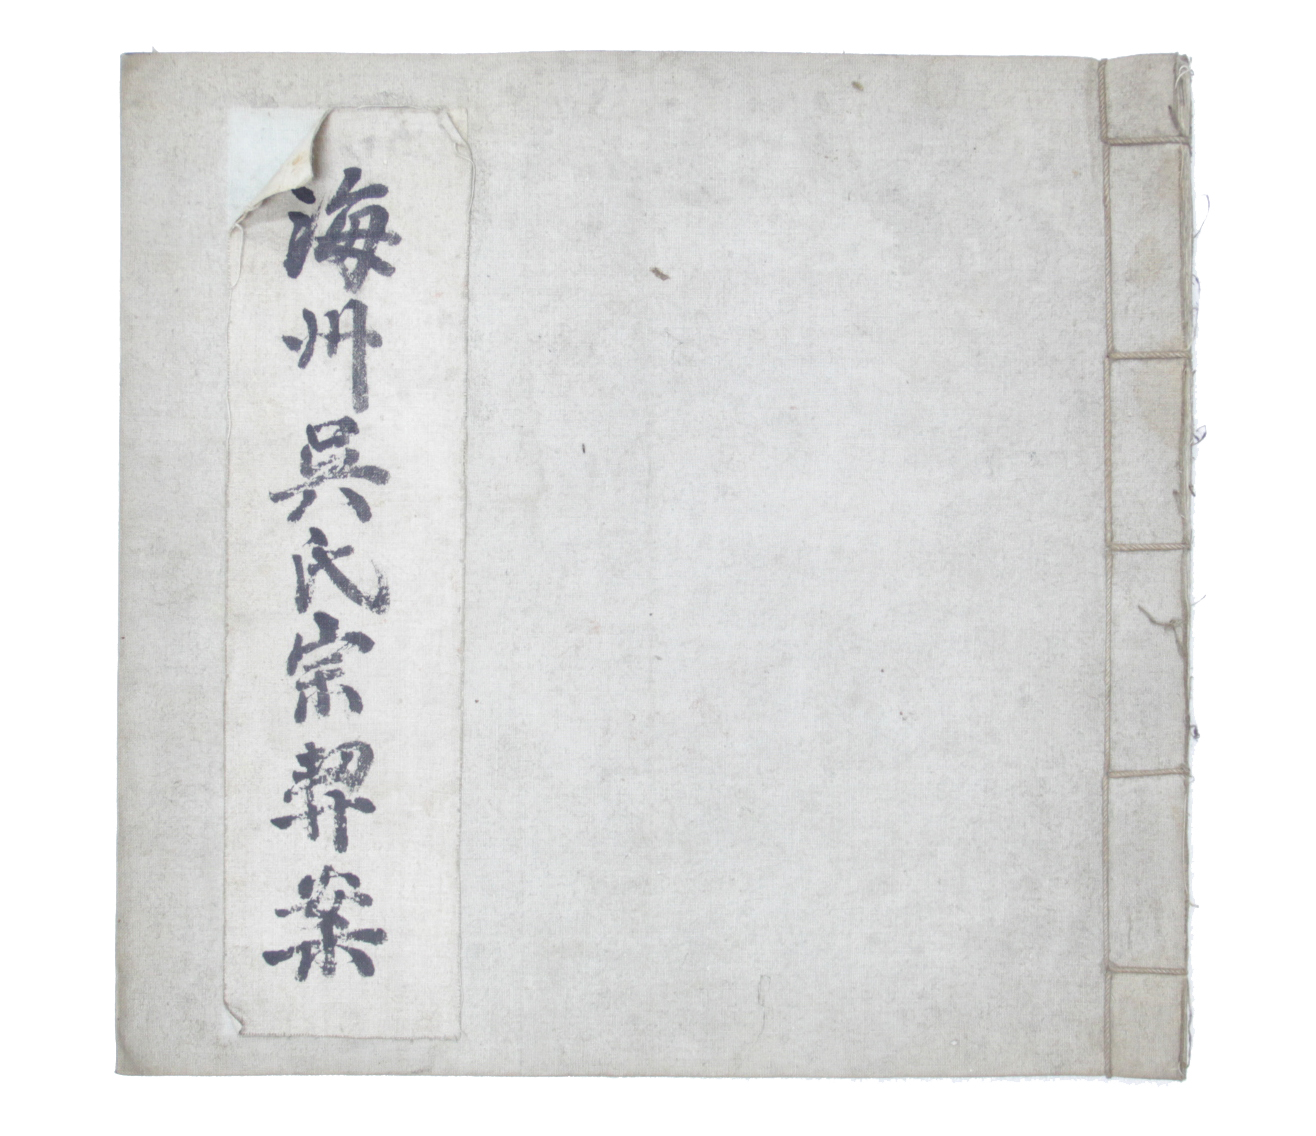 海州吳氏宗契案